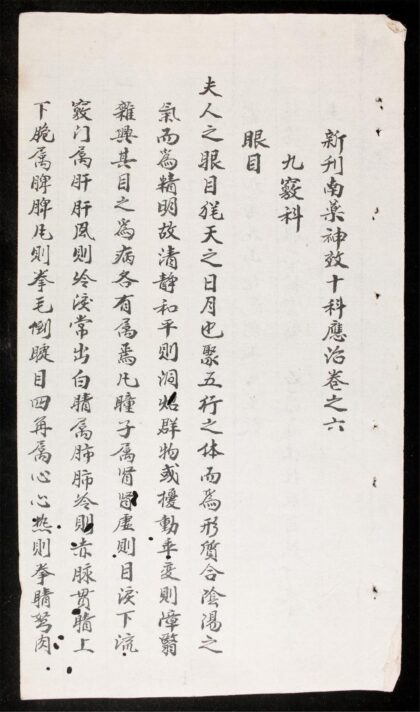 新刊南藥神效十科應治卷之六
九竅科
眼目
夫人之眼目犹天之日月也聚五行之体而爲形質合陰陽之
氣而爲精明故清静和平則洞燭群物或擾動乖变則障翳
雜興其目之爲病各有属焉凡瞳子属肾肾虚則目淚下流
竅门属肝肝風則冷淚常出白睛属肺肺冷則赤脉贯睛上
下胞属脾脾風則拳毛倒睫目四角属心心热則拳睛努肉